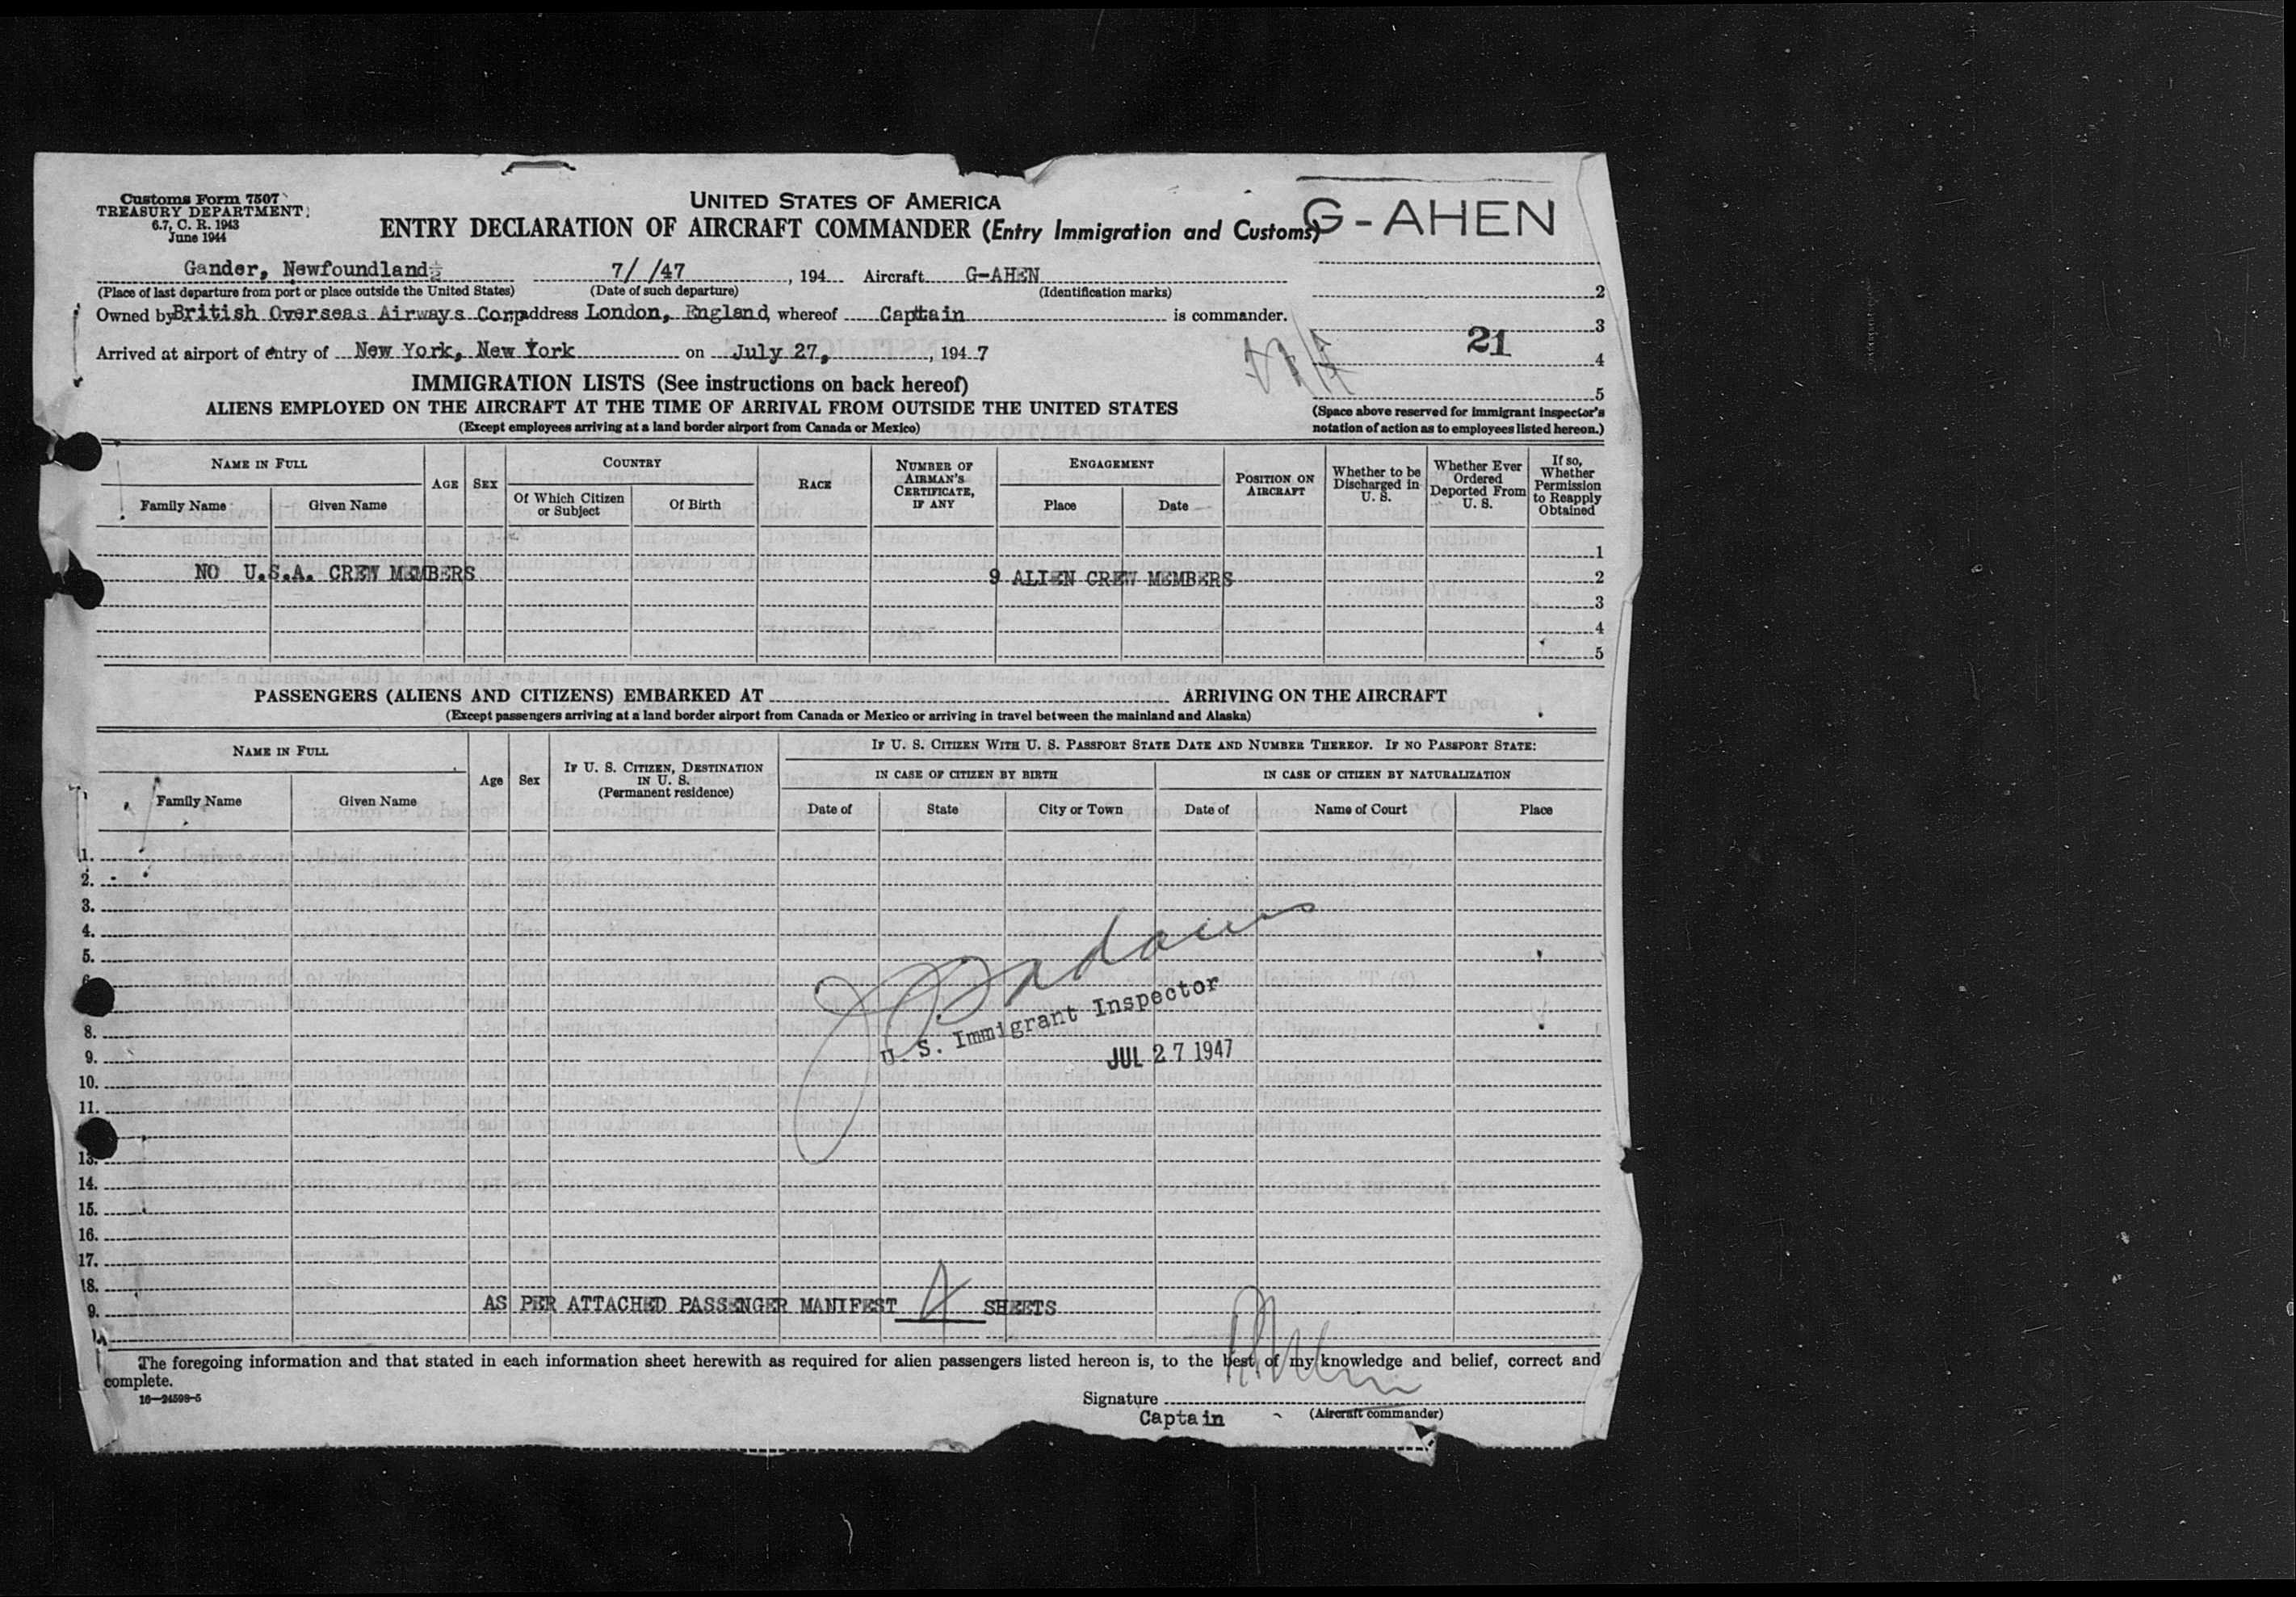 Customs Form 7507
TREASURY DEPARTMENT
6.7, C. R. 1943
June 1944
UNITED STATES OF AMERICA
ENTRY DECLARATION OF AIRCRAFT COMMANDER (Entry Immigration and Customs)
G-AHEN
Gander, Newfoundland 7/ /47, 194 Aircraft G-AHEN
(Place of last departure from port or place outside the United States) (Date of such departure) (Identification marks)
2
Owned by British Overseas Airways Corp address London, England, whereof Captain is commander.
3
21
Arrived at airport of entry of New York, New York on July 27, , 1947
4
IMMIGRATION LISTS (See instructions on back hereof)
5
ALIENS EMPLOYED ON THE AIRCRAFT AT THE TIME OF ARRIVAL FROM OUTSIDE THE UNITED STATES
(Except employees arriving at a land border airport from Canada or Mexico)
(Space above reserved for immigrant inspector's
notation of action as to employees listed hereon.)
NAME IN FULL
Family Name
Given Name
AGE
SEX
COUNTRY
Of Which Citizen
or Subject
Of Birth
RACE
NUMBER OF
AIRMAN'S
CERTIFICATE,
IF ANY
ENGAGEMENT
Place
Date
POSITION ON
AIRCRAFT
Whether to be
Discharged in
U. S.
Whether Ever
Ordered
Deported From
U. S.
If so,
Whether
Permission
to Reapply
Obtained
1
NO U.S.A. CREW MEMBERS 9 ALIEN CREW MEMBERS 2
3
4
5
PASSENGERS (ALIENS AND CITIZENS) EMBARKED AT ARRIVING ON THE AIRCRAFT
(Except passengers arriving at a land border airport from Canada or Mexico or arriving in travel between the mainland and Alaska)
NAME IN FULL
Family Name
Given Name
Age
Sex
IF U. S. CITIZEN, DESTINATION
IN U. S.
(Permanent residence)
IF U. S. CITIZEN WITH U. S. PASSPORT STATE DATE AND NUMBER THEREOF. IF NO PASSPORT STATE:
IN CASE OF CITIZEN BY BIRTH
IN CASE OF CITIZEN BY NATURALIZATION
Date of
State
City or Town
Date of
Name of Court
Place
1.
2.
3.
4.
5.
8.
U. S. Immigrant Inspector
9.
JUL 27 1947
10.
11.
13.
14.
15.
16.
17.
18.
9. AS PER ATTACHED PASSENGER MANIFEST 4 SHEETS
The foregoing information and that stated in each information sheet herewith as required for alien passengers listed hereon is, to the best of my knowledge and belief, correct and
complete.
16—24598-5
Signature
Captain (Aircraft commander)